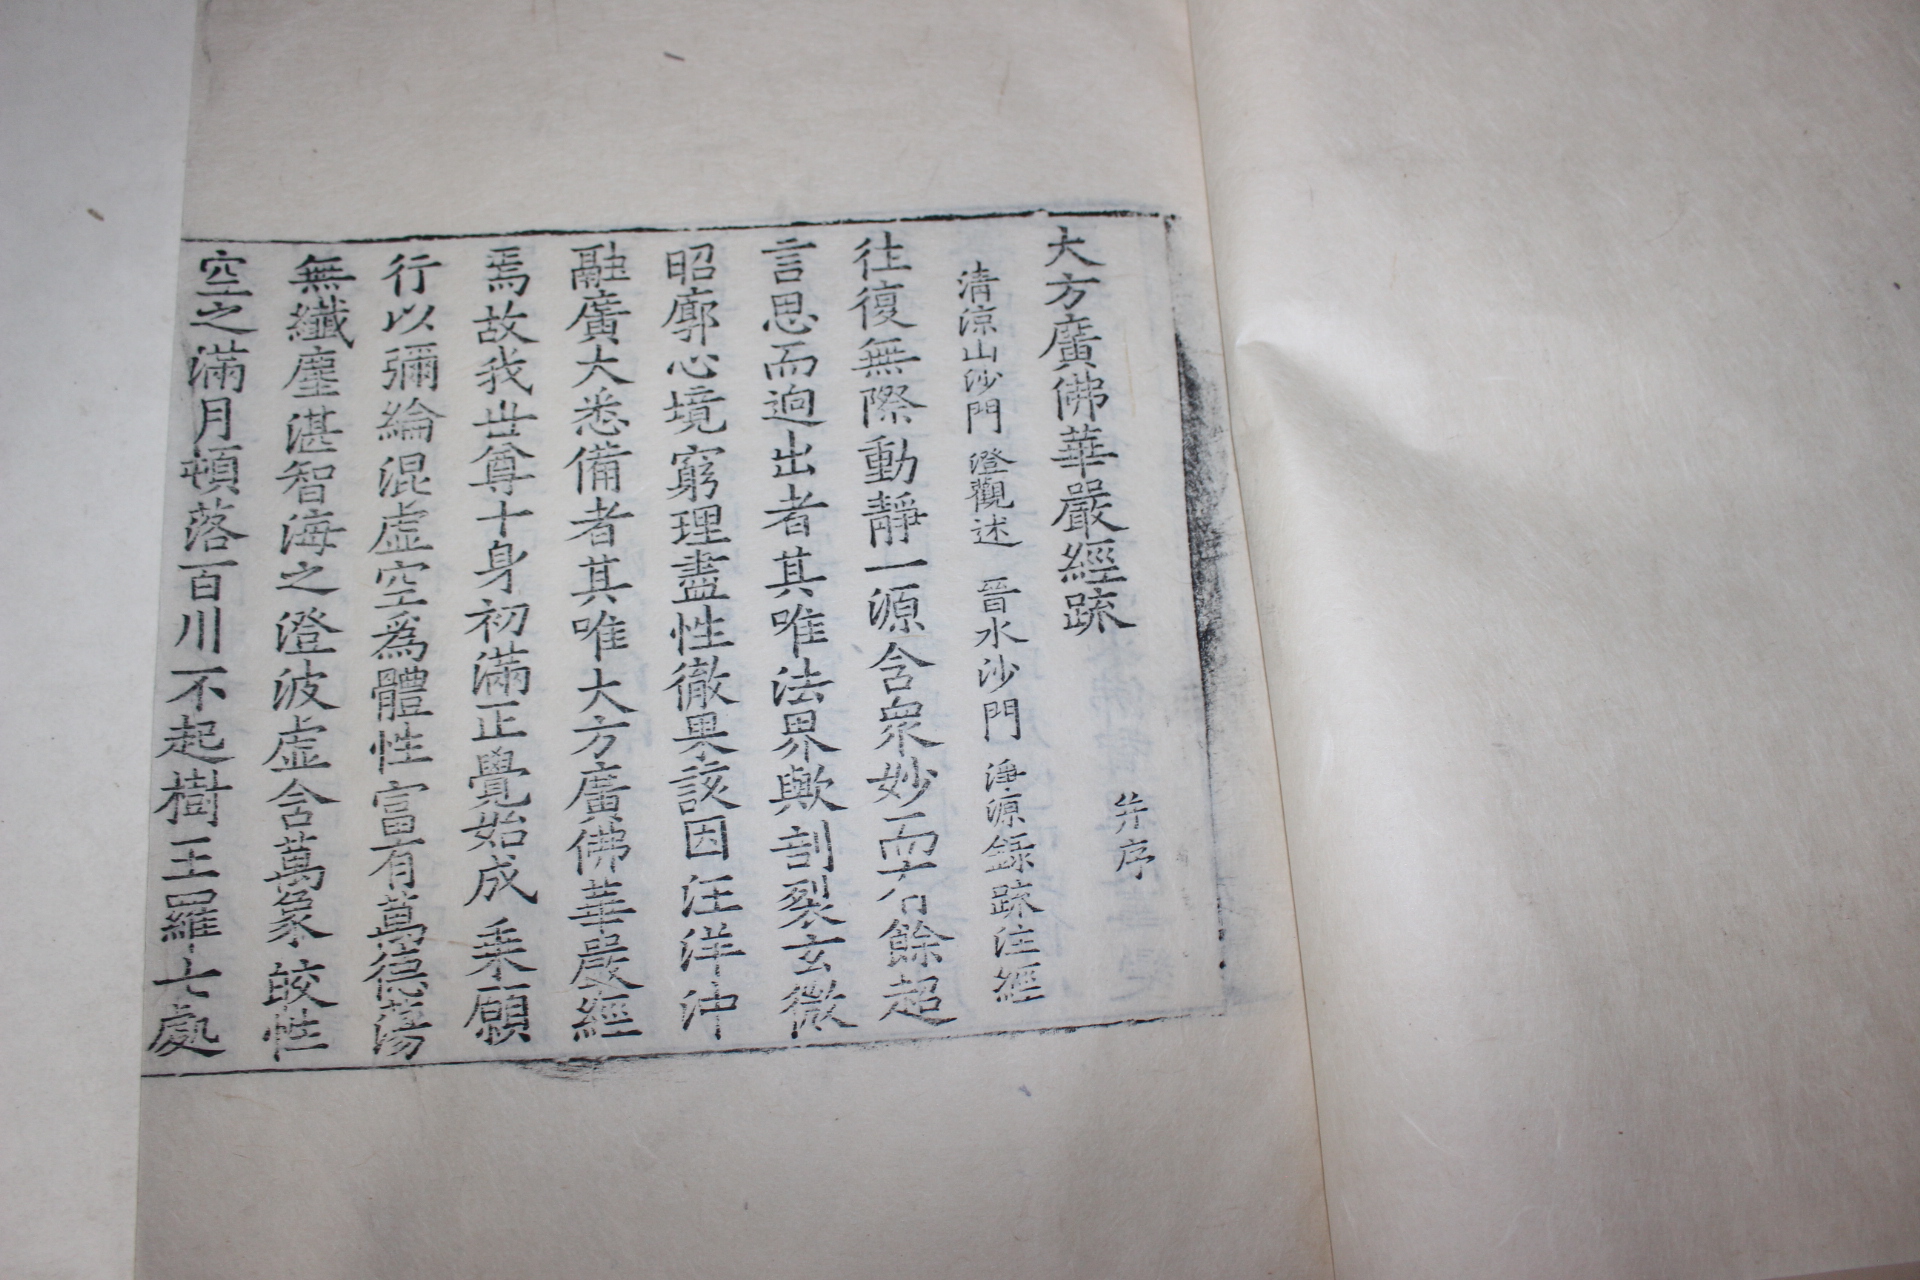 大方廣佛華嚴經䟽 并序
清涼山沙門 澄觀述 晉水沙門 淨源錄䟽注經
往復無際動靜一源含衆妙而有餘超
言思而逈出者其唯法界歟剖裂玄微
昭廓心境窮理盡性徹果該因汪洋沖
融廣大悉備者其唯大方廣佛華嚴經
焉故我世尊十身初滿正覺始成乘願
行以彌綸混虛空為體性富有萬德蕩
無纖塵湛智海之澄波虛含萬象皎性
空之滿月頓落百川不起樹王羅七處